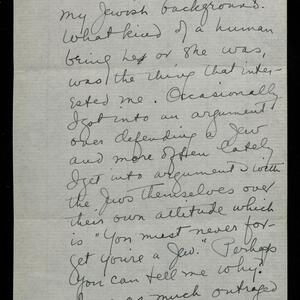 my Jewish background.
What kind of a human
being he or she was,
was the thing that inter-
ested me. Occasionally
I got into an argument
over defending a Jew
and more often lately
I get into arguments with
the Jews themselves over
their own attitude which
is "You must never for-
get you're a Jew." Perhaps
you can tell me why?
as much outraged